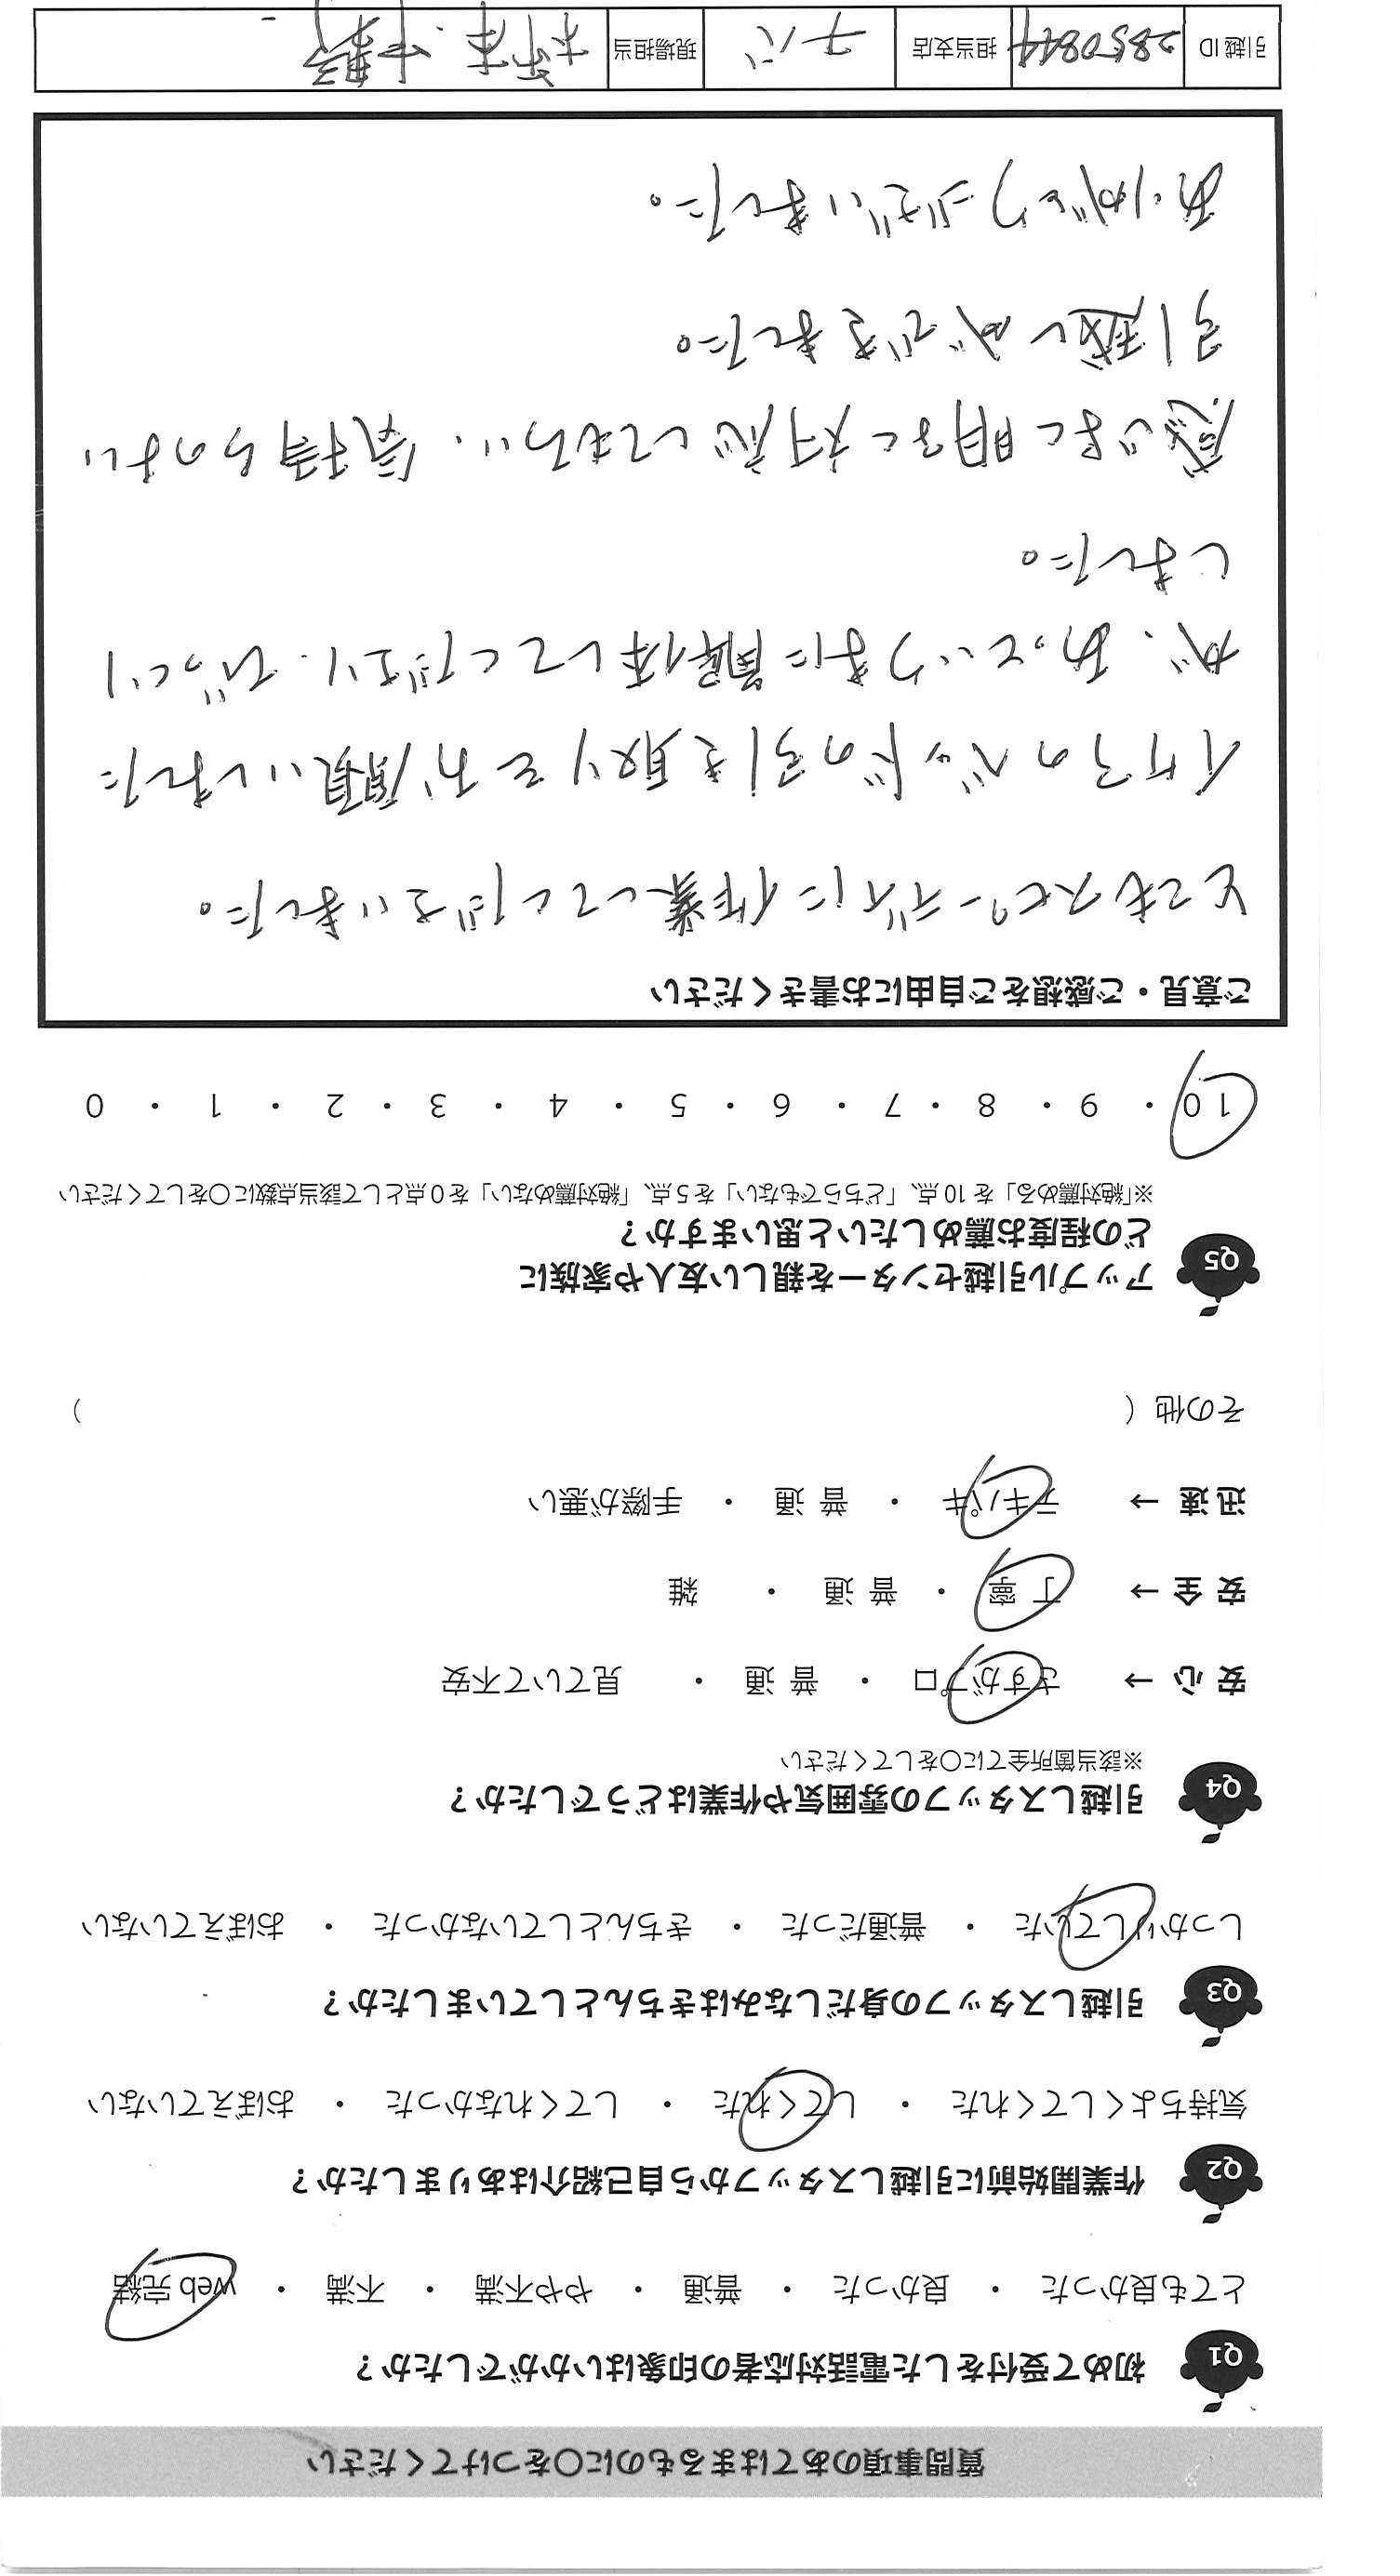 質問事項のあてはまるものに〇をつけてください
Q1 初めて受付をした電話対応者の印象はいかがでしたか？
とても良かった ・ 良かった ・ 普通 ・ やや不満 ・ 不満 ・ web 完結
Q2 作業開始前に引越しスタッフから自己紹介はありましたか？
気持ちよくしてくれた ・ してくれた ・ してくれなかった ・ おぼえていない
Q3 引越しスタッフの身だしなみはきちんとしていましたか？
しっかりしていた ・ 普通だった ・ きちんとしていなかった ・ おぼえていない
Q4 引越しスタッフの雰囲気や作業はどうでしたか？
※該当箇所全てに〇をしてください
安 心 → さすがプロ ・ 普 通 ・ 見ていて不安
安 全 → 丁 寧 ・ 普 通 ・ 雑
迅 速 → テキパキ ・ 普 通 ・ 手際が悪い
その他（ ）
Q5 アップル引越センターを親しい友人や家族に
どの程度お薦めしたいと思いますか？
※「絶対薦める」を 10 点、「どちらでもない」を 5 点、「絶対薦めない」を 0 点として該当点数に〇をしてください
10 ・ 9 ・ 8 ・ 7 ・ 6 ・ 5 ・ 4 ・ 3 ・ 2 ・ 1 ・ 0
ご意見・ご感想をご自由にお書きください
とてもスピーディに作業してくださいました。
イケアのベッドの引き取りをお願いしました
が、あっというまに解体してくださり、びっくり
しました。
感じよく明るく対応してもらい、気持ちのよい
引越しができました。
ありがとうございました。
引越 ID 2850844 担当支店 チバ 現場担当